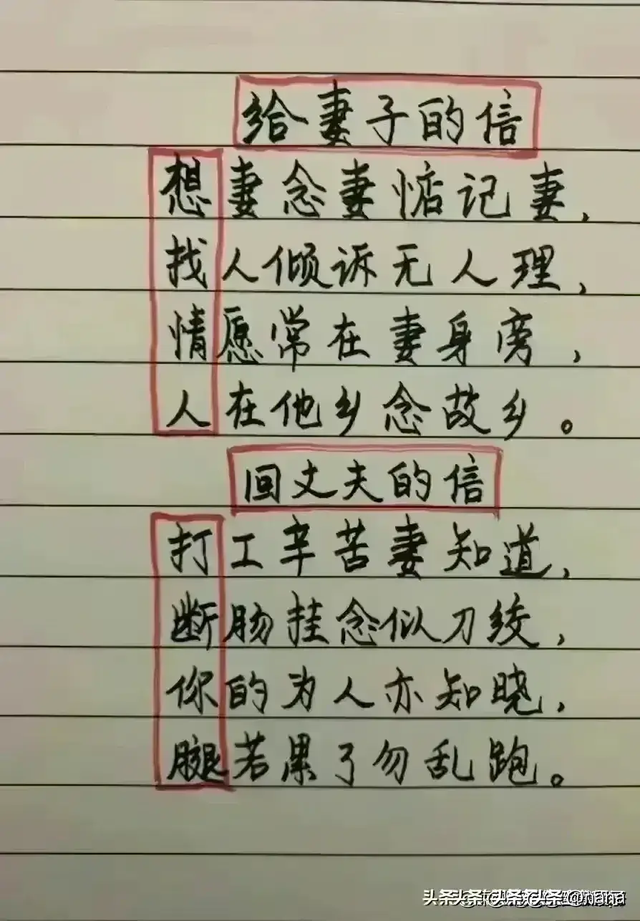 给妻子的信
想妻念妻惦记妻，
找人倾诉无人理，
情愿常在妻身旁，
人在他乡念故乡。
回丈夫的信
打工辛苦妻知道，
断肠挂念似刀绞，
你的为人亦知晓，
腿若果了勿乱跑。